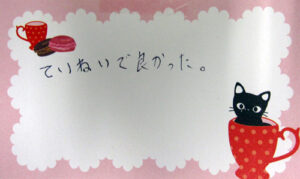 ていねいで良かった。